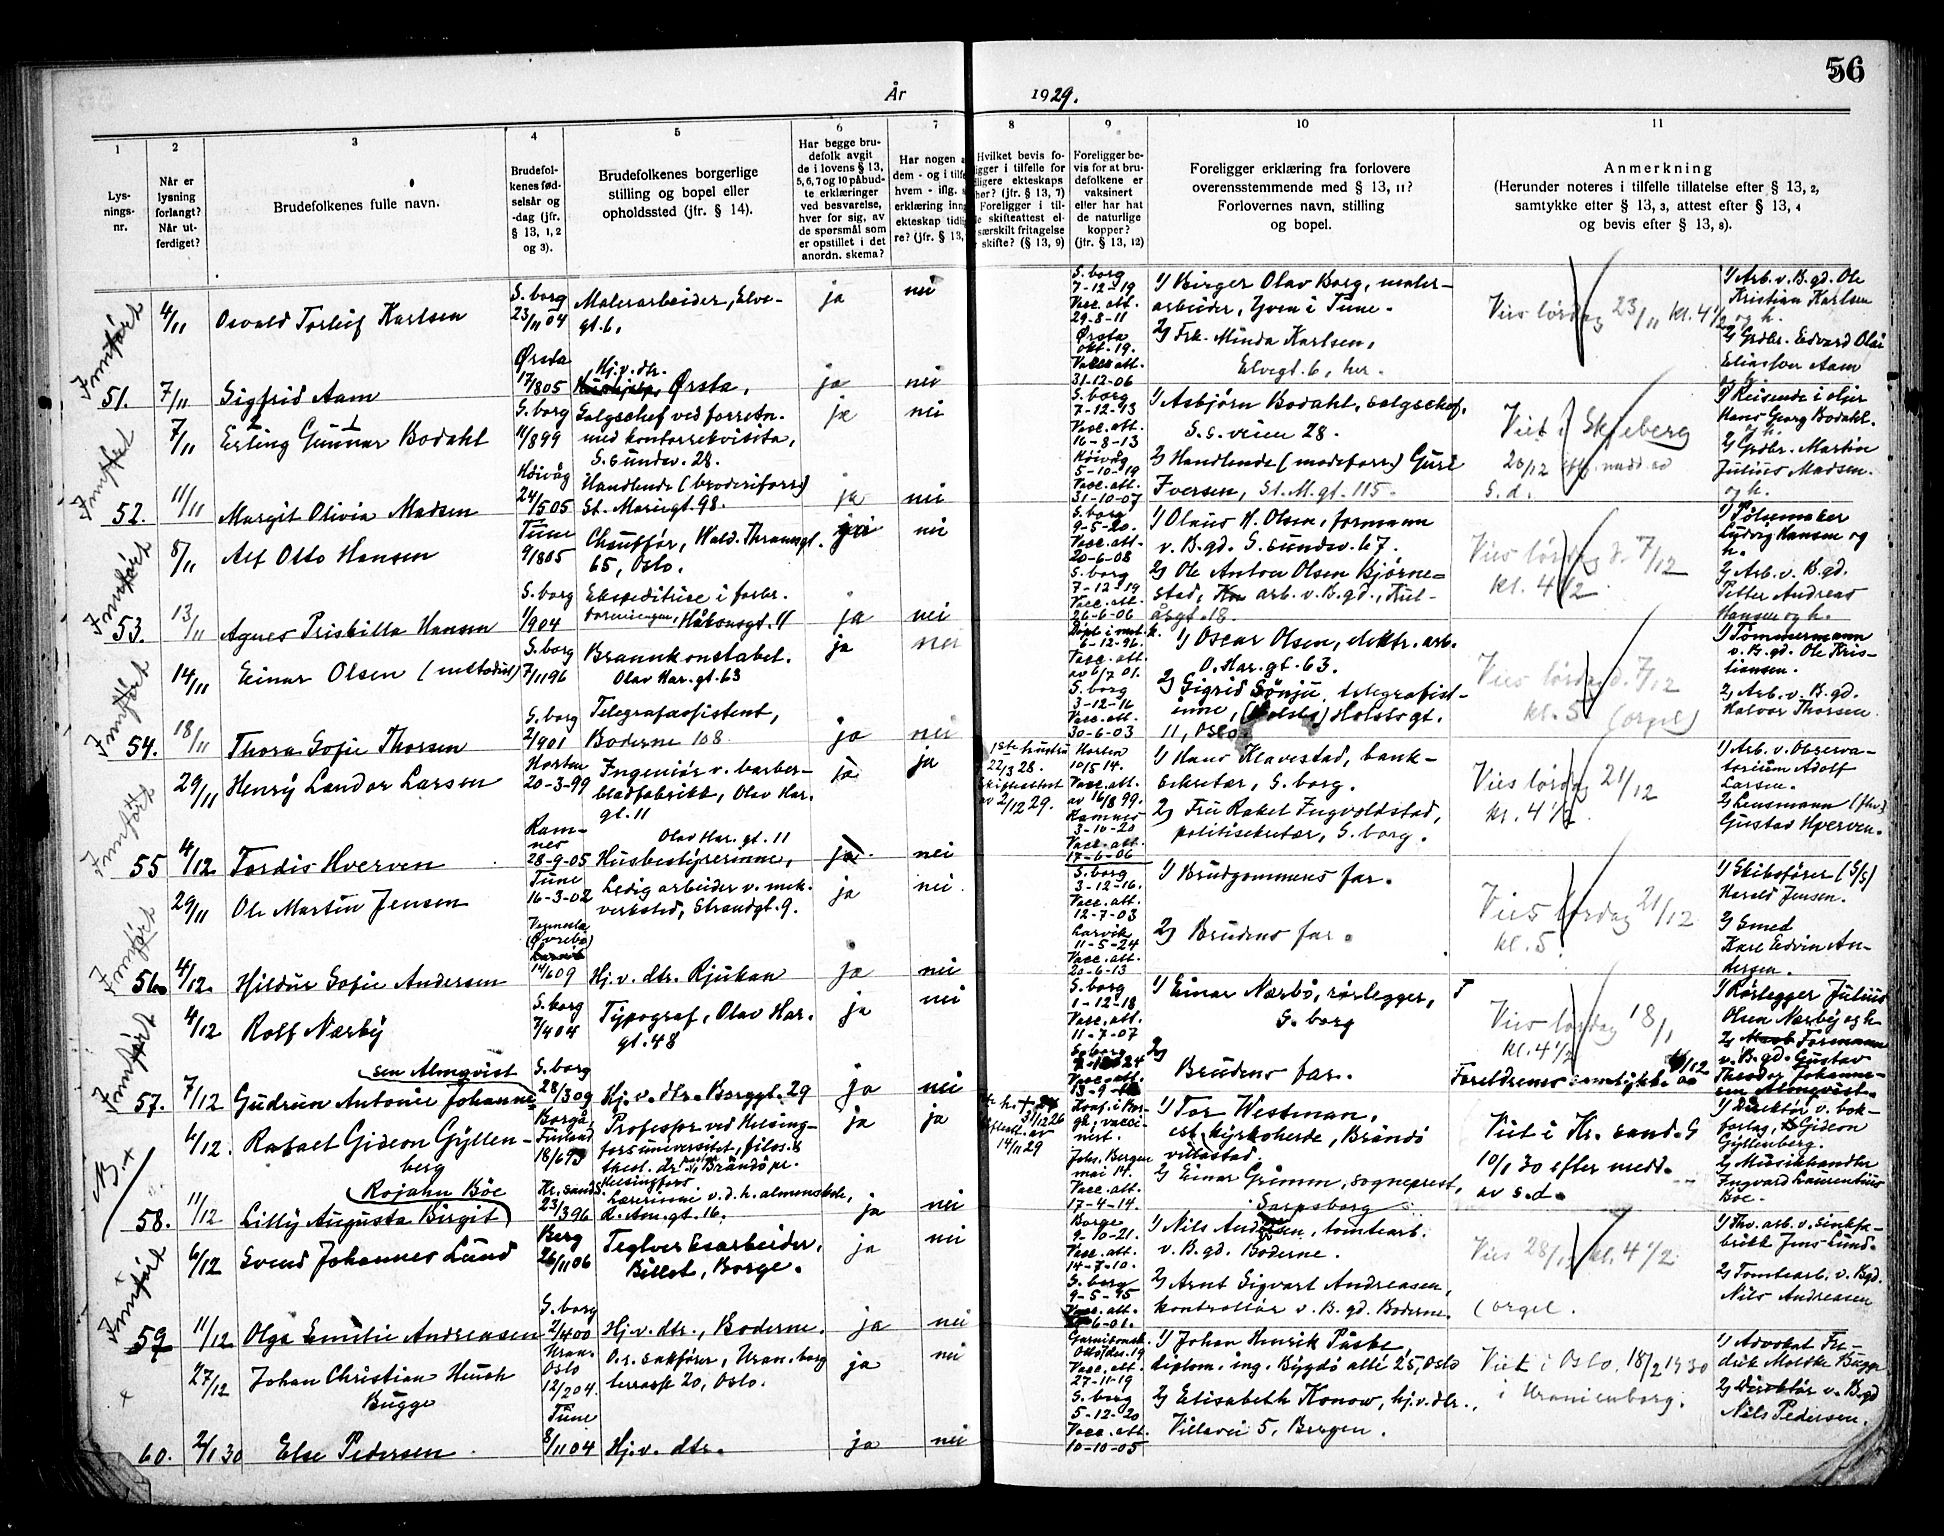 56
År 1929.
1 2 3 4 5 6 7 8 9 10 11
Lys-
nings-
nr.
Når er
lysning
forlangt?
Når ut-
ferdiget?
Brudefolkenes fulle navn.
Brudefol-
kenes fød-
selsår og
-dag (jfr.
§ 13, 1, 2
og 3).
Brudefolkenes borgerlige
stilling og bopel eller
opholdssted (jfr. § 14).
Har begge bru-
defolk avgit
de i lovens § 13,
5, 6, 7 og 10 påbud-
te erklæringer
ved besvarelse,
hver for sig, av
de spørsmål som
er opstillet i det
anordn. skema?
Har nogen a
dem - og i tilfe
hvem - iflg. s
erklæring inng
ekteskap tidlig
re? (jfr. § 13,
Hvilket bevis fo-
ligger i tilfelle for
dligere ekteskaps
her? (jfr. § 13, 7)
Foreligger i til-
le skifteattest el-
særskilt fritagelse
skifte? (§ 13, 9)
Foreligger be-
vis for at bru-
defolkene er
vaksinert
eller har hat
de naturlige
kopper?
(jfr. § 13, 12)
Foreligger erklæring fra forlovere
overensstemmende med § 13, 11?
Forlovernes navn, stilling
og bopel.
Anmerkning
(Herunder noteres i tilfelle tillatelse efter § 13, 2,
samtykke efter § 13, 3, attest efter § 13, 4
og bevis efter § 13, 8).
Innført
51.
4/11
Osvald Torleif Karlsen
S. borg
23/11 04
Malerarbeider, Elve-
gt. 6,
ja
nei
S. borg
7-12-19
Vacc. att.
29-8-11
1) Birger Olav Borg, maler-
arbeider, Yven i Tune.
2) Frk. Minda Karlsen,
Elvegt. 6, her.
Vies lørdag 23/11 kl. 4 1/2
1) Arb. v. B. gd. Ole
Kristian Karlsen
og h.
2) Grdbr. Edvard Olai
Eliassen Aam
7/11
Sigfrid Aam
Ørsta
17/8 05
Hj. v. dtr.
Ørsta,
ja
nei
Ørsta
okt. 19.
Vacc. att.
31-12-06
Innført
52.
7/11
Erling Gunnar Bodahl
S. borg
11/8 99
Salgschef ved forretn.
med kontorrekvisita,
S. sundsv. 28.
ja
nei
S. borg
7-12-13
Vacc. att.
16-8-13
1) Asbjørn Bodahl, salgschef,
S. s. veien 28.
2) Handlende (modeforr.) Guri
Iversen, St. M. gt. 115.
Viet i Skjeberg
26/12 efter medd. av
s. d.
1) Reisende i oljer
Hans Georg Bodahl
og h.
2) Grdbr. Martin
Julius Madsen
og h.
11/11
Margit Olivia Madsen
Høivåg
24/5 05
Handlende (broderiforr.)
St. Mariegt. 98.
ja
nei
Høivåg
5-10-19
Vacc. att.
31-10-07
Innført
53.
8/11
Alf Otto Hansen
Tune
9/8 05
Chauffør, Wald. Thranesgt.
65, Oslo.
ja
nei
S. borg
9-5-20.
Vacc. att.
20-6-08
1) Olaus H. Olsen, formann
v. B. gd. S. sundsv. 67.
2) Ole Anton Olsen Bjørne-
stad, arb. v. B. gd., Kul-
åsgt. 18.
Vies lørdag d. 7/12
kl. 4 1/2
1) Pølsemaker
Ludvig Hansen og
h.
2) Arb. v. B. gd.
Petter Andreas
Hansen og h.
13/11
Agnes Priskilla Hansen
S. borg
1/9 04
Ekspeditrise i forbr.
foreningen, Håkonsgt. 11
ja
nei
S. borg
7-12-19
Vacc. att.
26-6-06
Innført
54.
14/11
Einar Olsen (metodist)
S. borg
7/11 96
Brannkonstabel.
Olav Har. gt. 63
ja
nei
Døpt i met. k.
6-12-96.
Vacc. att.
av 6/7 01.
1) Oscar Olsen, elektr. arb.
O. Har. gt. 63.
2) Sigrid Sønju, telegrafist-
inne, Holsts gt.
11, Oslo
Vies lørdag d. 7/12
kl. 5. (orgel)
1) Tømmermann
v. B. gd. Ole Kris-
tiansen.
2) Arb. v. B. gd.
Halvor Thorsen
18/11
Thora Sofie Thorsen
S. borg
2/9 01
Telegrafassistent,
Boderne 108
ja
nei
S. borg
3-12-16
Vacc. att.
30-6-03
Innført
55
29/11
Henry Landor Larsen
Horten
20-3-99
Ingeniør v. barber-
bladfabrikk, Olav Har.
gt. 11
ja
ja
1ste hustru
22/3 28.
Skifteattest
av 2/12 29.
Horten
10/5 14.
Vacc. att.
av 16/8 99.
1) Hans Klavestad, bank-
sekretær, S. borg.
2) Fru Rakel Ingvoldstad,
politisekretær, S. borg.
Vies lørdag 21/12
kl. 4 1/2
1) Arb. v. Observa-
torium Adolf
Larsen.
2) Lensmann (fhv.)
Gustav Hverven.
4/12
Tordis Hverven
Ram-
nes
28-9-05
Olav Har. gt. 11
Husbestyrerinne,
ja
nei
Ramnes
3-10-20
Vacc. att.
17-6-06
Innført
56.
29/11
Ole Martin Jensen
Tune
16-3-02
Ledig arbeider v. mek.
verksted, Strandgt. 9.
ja
nei
S. borg
3-12-16.
Vacc. att.
12-7-03
1) Brudgommens far.
2) Brudens far.
Vies lørdag 21/12
kl. 5
1) Skibsfører (S/S)
Harald Jensen.
2) Smed
Karl Edvin An-
dersen.
4/12.
Hildur Sofie Andersen
Vennesla
(Øvrebø)
14/6 09
Hj. v. dtr. Rjukan
ja
nei
Larvik
11-5-24
Vacc. att.
20-6-13
Innført
57.
4/12
Rolf Nærby
S. borg
7/4 04
Typograf, Olav Har.
gt. 48
ja
nei
S. borg
1-12-18
Vacc. att.
11-7-07
1) Einar Nærbö, rørlegger,
S. borg
2) Brudens far.
Vies lørdag 18/1
kl. 4 1/2
Foreldrenes samtykke av 4/12
1) Rørlegger Julius
Olsen Nærby og h.
2) Formann
v. B. gd. Gustav
Theodor Johanne-
sen Almqvist.
7/12
Gudrun Antonie Johanne-
sen Almqvist
S. borg
28/3 09
Hj. v. dtr. Borggt. 29
ja
nei
Vacc. att.
N.B. +
58.
6/12.
Rafael Gideon Gyllen-
berg
Borgå,
Finland
18/6 93
Professor ved Helsing-
fors universitet, filos. &
theol. dr., Brändö pr.
Helsingfors
ja
ja
31/12 26
Skifteatt. av
14/11 29
Konf. i Bor-
gå, vacci-
nert.
1) Tor Westman,
est. kyrkoherde, Brändö
villastad.
2) Einar Grimm, sogneprest,
Sarpsborg
Viet i Kr. sand. S
10/1 30 efter medd.
av s. d.
1) Direktør v. bok-
forlag, Gideon
Gyllenberg.
2) Musikkhandler
Ingvard Laurentius
Böe.
11/12
Lilly Augusta Birgit
Rojahn Böe
Kr. sand S.
23/3 96
Lærerinne v. d. h. almenskole,
R. Am. gt. 16.
ja
nei
Johs. Bergen
mai 14.
Vacc. att.
17-4-14
Innført
59
6/12
Svend Johannes Lund
Berg
26/11 06
Teglverksarbeider,
Billet, Borge.
ja
nei
Borge
9-10-21.
Vacc. att.
14-7-10.
1) Nils Andersen, tomtearb.
v. B. gd. Boderne.
2) Arnt Sigvart Andreasen,
kontrollør v. B. gd. Boderne.
Vies 28/12 kl. 4 1/2
(orgel.
1) Fhv. arb. v. sinkfa-
brikk Jens Lund.
2) Tomtearb. v. Bgd.
Nils Andreasen
11/12
Olga Emilie Andreasen
S. borg
2/4 00
Hj. v. dtr., Boderne.
ja
nei
S. borg
9-5-15
Vacc. att.
+
60.
27/12
Johan Christian Heuch
Bugge
Uran.
Oslo
12/2 04.
O. r. sakfører, Uran. borg
terrasse 20, Oslo.
ja
nei
Garnisonsk.
Oslo/des. 19
Vacc. att.
27-11-19
1) Johan Henrik Paske,
diplom. ing. Bygdö allé 25, Oslo
2) Elisabeth Konow, hj. v. dtr.,
Villavei 5, Bergen.
Viet i Oslo, 18/2 1930
i Uranienborg.
1) Advokat Fre-
drik Moltke Bugge
2) Direktør v. B. gd
Nils Pedersen.
2/1 30
Else Pedersen
Tune
8/11 04
Hj. v. dtr.
ja
nei
S. borg
5-12-20
Vacc. att.
10-10-05